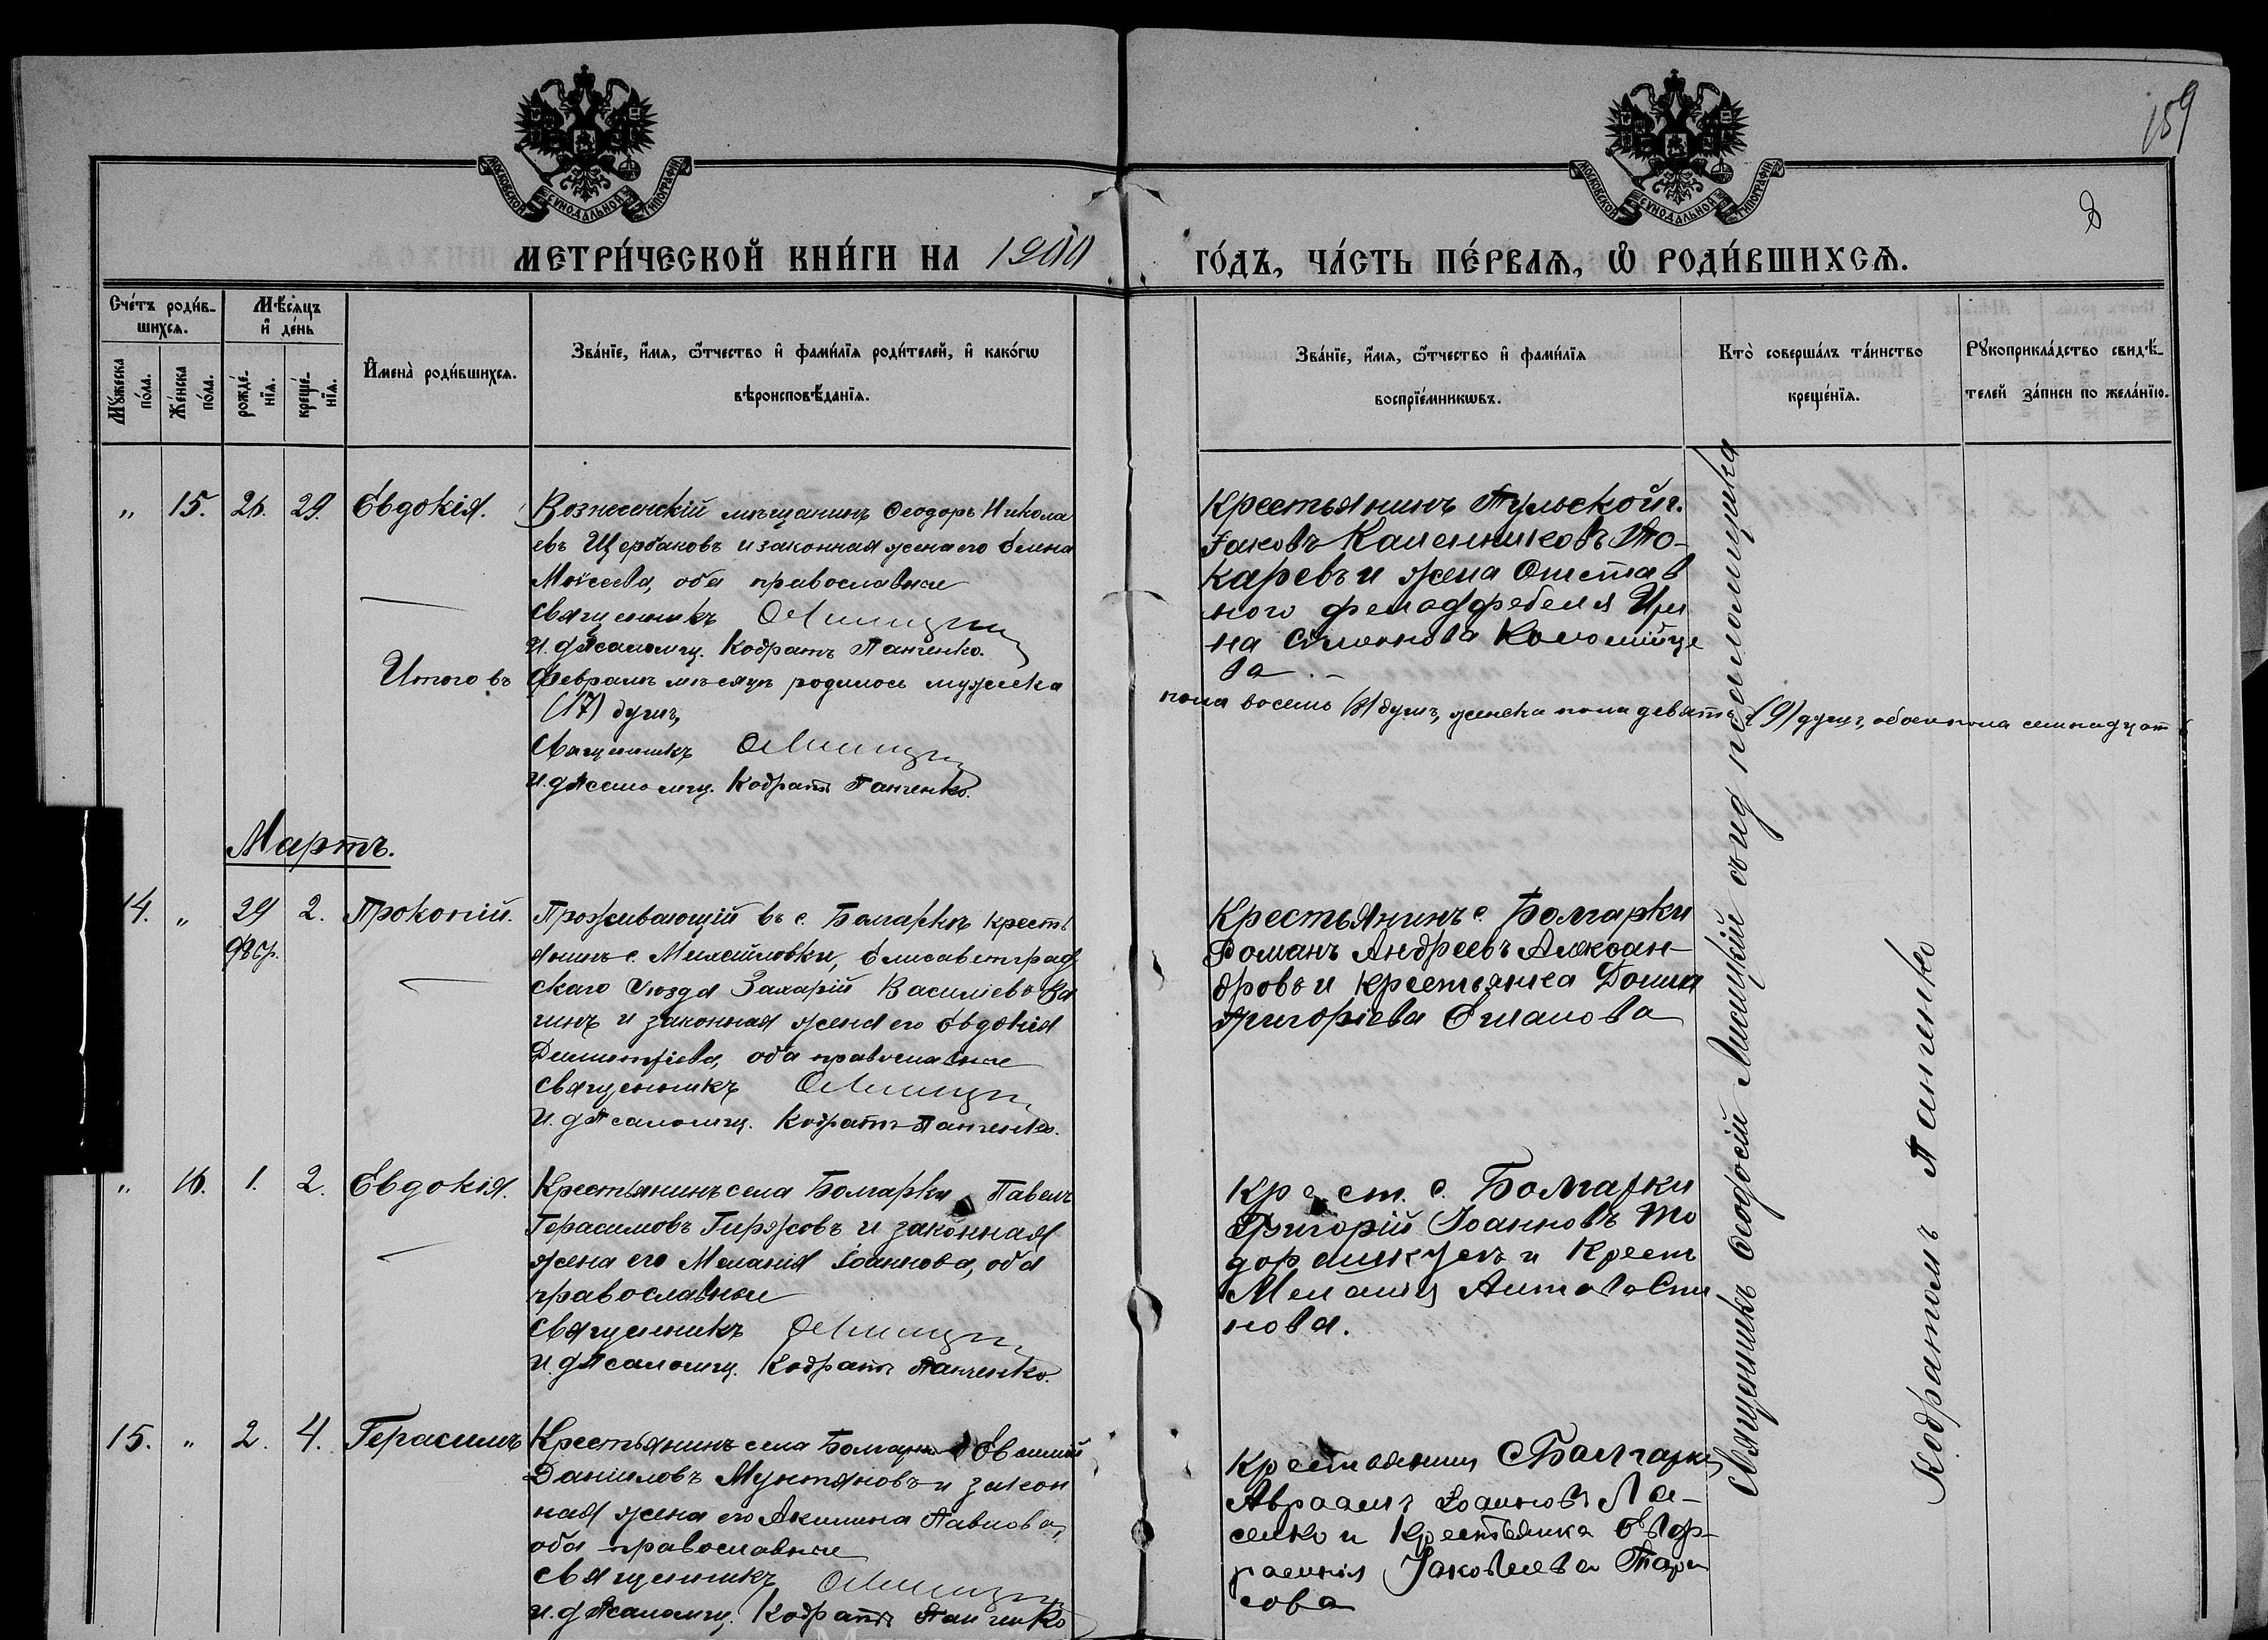 159
8
МОСКОВСКОЙ СѴНОДАЛЬНОЙ ТИПОГРАФІИ
МОСКОВСКОЙ СѴНОДАЛЬНОЙ ТИПОГРАФІИ
МЕТРИ́ЧЕСКОЙ КНИ́ГИ НА 1900 ГО́ДЪ, ЧА́СТЬ ПЕ́РВАѦ, Ѽ РОДИ́ВШИХСѦ.
Сче́тъ роди́в-
шихсѧ.
Мꙋжеска по́ла.
Же́нска по́ла.
Мѣ́сѧцъ
и҆ де́нь
рожде́-
нїѧ.
креще́-
нїѧ.
И҆мена̀ роди́вшихсѧ.
Зва́нїе, и҆́мѧ, ѿтчество и҆ фами́лїѧ роди́телей, и҆ како́гѡ
вѣроисповѣ́данїѧ.
Зва́нїе, и҆́мѧ, ѿтчество и҆ фами́лїѧ
воспрїе́мникѡвъ.
Кто̀ соверша́лъ та́инство
креще́нїѧ.
Рꙋкоприкла́дство свидѣ́-
телей за́писи по жела́нїю.
" 15. 26. 29. Евдокія.
Вознесенскій мѣщанинъ Ѳеодоръ Никола
евъ Щербаковъ и законная жена его Елена
Моѵсеева, оба православные
Священникъ
И. д. Псаломщ. Кодратъ Панченко.
Крестьянинъ Тульской г.
Іаковъ То-
каревъ и жена Отстав
ного фельдфебеля Ири
на Симеонова Коломійце
ва.
Итого въ Февралѣ мѣсяцѣ родилось мужеска
пола восемь (8) душъ, женска пола девять (9) душъ, обоего пола семнадцать
(17) душъ,
Священникъ
И. д. Псаломщ. Кодратъ Панченко.
Мартъ.
14. " 29 2. Прокопій.
Февр.
Проживающій въ с. Болгаркѣ кресть
янинъ с. Михайловки, Елисаветград
скаго уѣзда Захарій Василіевъ Ва
и законная жена его Евдокія
Димитріева, оба православные
Священникъ
И. д. Псаломщ. Кодратъ Панченко.
Крестьянинъ с. Болгарки
Романъ Андреевъ Алексан-
дровъ и крестьянка Домна
Григоріева
" 16. 1. 2. Евдокія.
Крестьянинъ села Болгарки Павелъ
Герасимовъ Гиржовъ и законная
жена его Меланія Іоаннова, оба
православные
Священникъ
И. д. Псаломщ. Кодратъ Панченко.
Крест. с. Болгарки
Григорій Іоанновъ То
и Крест
Меланія
нова.
15. " 2. 4. Герасимъ
Крестьянинъ села Болгарки
Даніиловъ Мунтяновъ и закон
ная жена его Акилина Павлова,
оба православные
Священникъ
И. д. Псаломщ. Кодратъ Панченко
Крестьянинъ с Болгарки
Авраамъ Іоанновъ Ла-
и Крестьянка Евф-
Іаковлева Тара
сова
Священникъ Ѳеодосій Лисицкій съ и д псаломщика
Кодратомъ Панченко